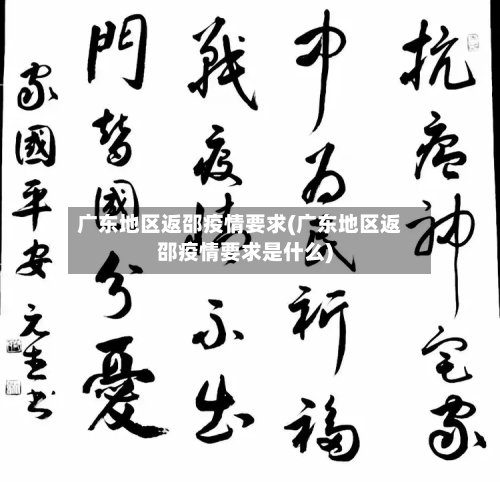 抗瘟神宅家
中为民祈福
戰疫情不出
門替國分憂
家國平安
元
书
广东地区返邵疫情要求(广东地区返
邵疫情要求是什么)